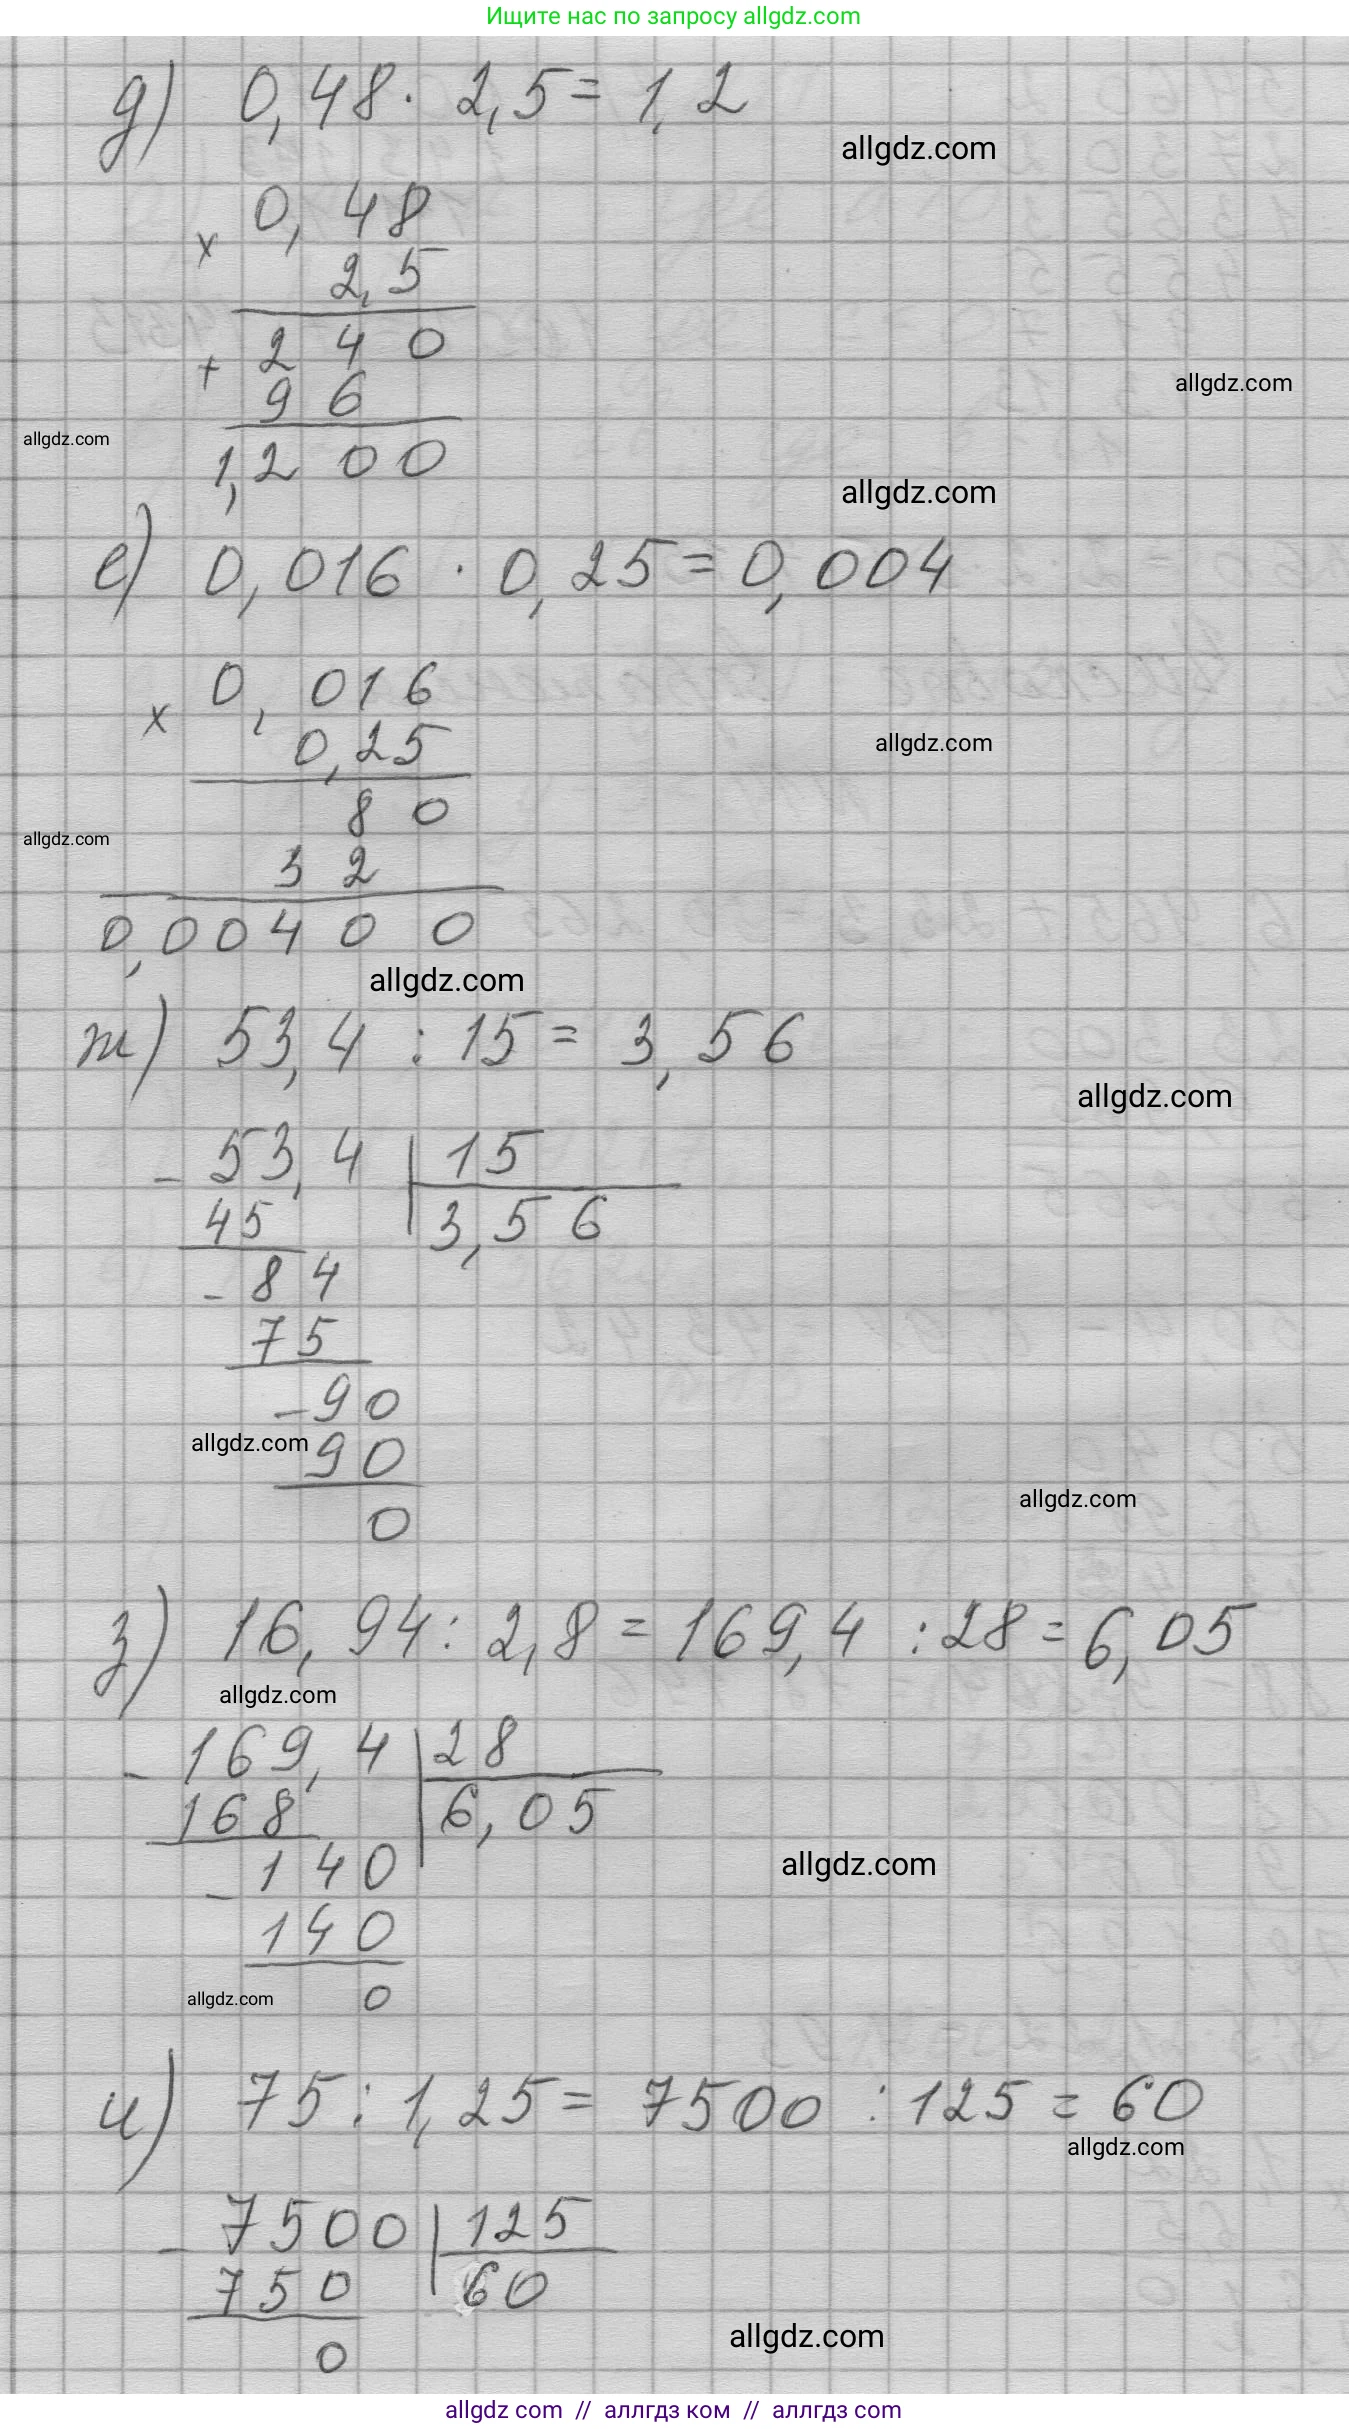 Ищите нас по запросу allgdz.com
д) 0,48 · 2,5 = 1,2
allgdz.com
× 0,48
2,5
+ 240
allgdz.com
96
allgdz.com
1,200
allgdz.com
е) 0,016 · 0,25 = 0,004
× 0,016
0,25
allgdz.com
80
allgdz.com
32
0,00400
allgdz.com
ж) 53,4 : 15 = 3,56
allgdz.com
- 53,4 | 15
45 | 3,56
- 84
75
- 90
allgdz.com
90
allgdz.com
0
з) 16,94 : 2,8 = 169,4 : 28 = 6,05
allgdz.com
- 169,4 | 28
168 | 6,05
- 140
allgdz.com
140
allgdz.com
0
и) 75 : 1,25 = 7500 : 125 = 60
allgdz.com
- 7500 | 125
750 | 60
allgdz.com
0
allgdz com // аллгдз ком // аллгдз com